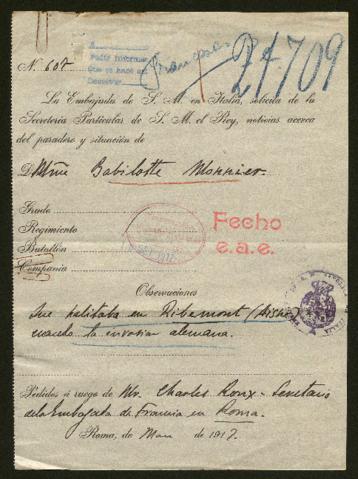 Nº 607
Pedir informes
que se hace en
Francesa
24709
La Embajada de S. M. en Italia, solicita de la
Secretaría Particular de S. M. el Rey, noticias acerca
del paradero y situación de
D. Mme Babilotte Monnier.
Grado
Regimiento
Batallón
Compañía
Fecho
e.a.e.
Observaciones
Que habitaba en Ribemont (Aisne)
cuando la invasion alemana.
Pedidos á ruego de Mr. Charles Roux - Secretario
de la Embajada de Francia en Roma.
Roma, de Mars de 1917.